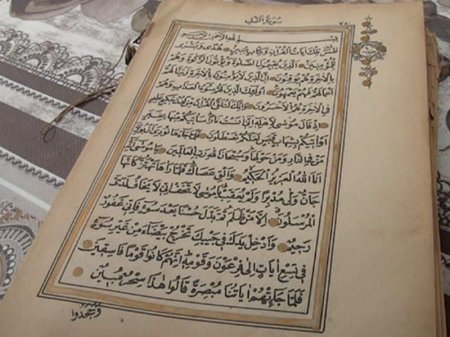 سورة النمل
بسم الله الرحمن الرحيم
طس تلك ايات القران وكتاب مبين هدى وبشرى
للمؤمنين الذين يقيمون الصلوة ويؤتون الزكوة وهم
بالاخرة هم يوقنون ان الذين لا يؤمنون بالاخرة زينا لهم
اعمالهم فهم يعمهون اولئك الذين لهم سوء العذاب وهم
في الاخرة هم الاخسرون وانك لتلقى القران من لدن حكيم عليم
اذ قال موسى لاهله اني انست نارا ساتيكم منها بخبر او
اتيكم بشهاب قبس لعلكم تصطلون فلما جاءها نودي ان بورك
من في النار ومن حولها وسبحان الله رب العالمين يا موسى انه
انا الله العزيز الحكيم والق عصاك فلما راها تهتز كانها
جان ولى مدبرا ولم يعقب يا موسى لا تخف اني لا يخاف لدي
المرسلون الا من ظلم ثم بدل حسنا بعد سوء فاني غفور
رحيم وادخل يدك في جيبك تخرج بيضاء من غير سوء
في تسع ايات الى فرعون وقومه انهم كانوا قوما فاسقين
فلما جاءتهم اياتنا مبصرة قالوا هذا سحر مبين
وجحدوا